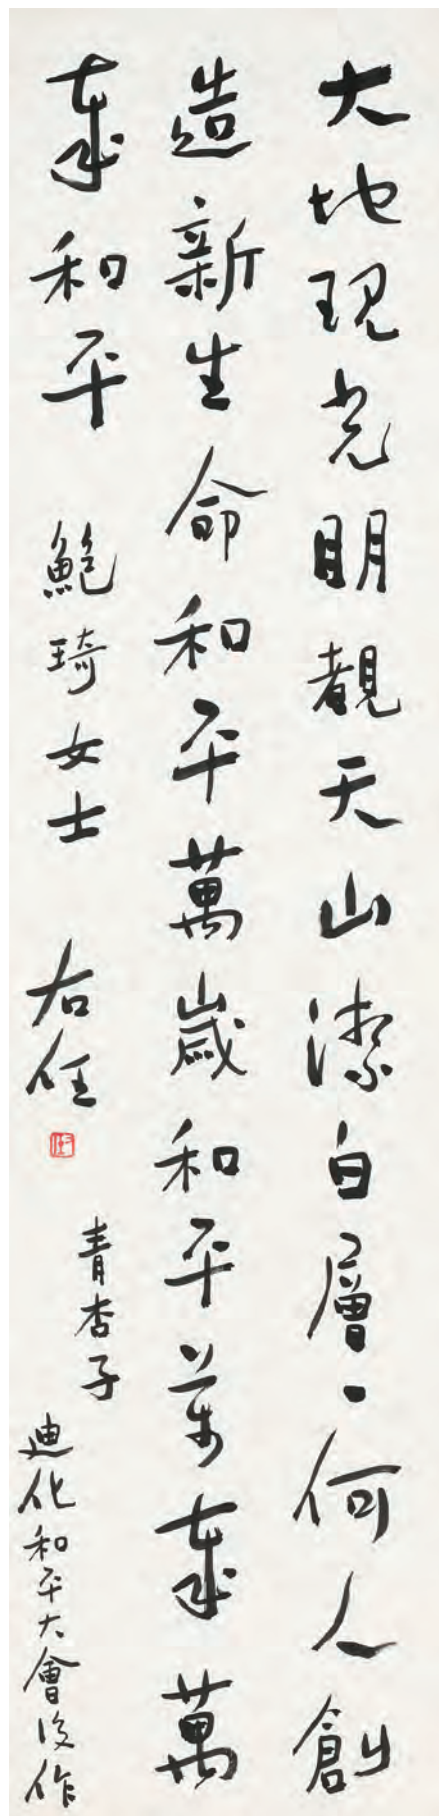 大地現光明覩天山潔白層々何人創
造新生命和平萬歲和平萬歲萬
歲和平 鮑琦女士 右任
青杏子
迪化和平大會後作